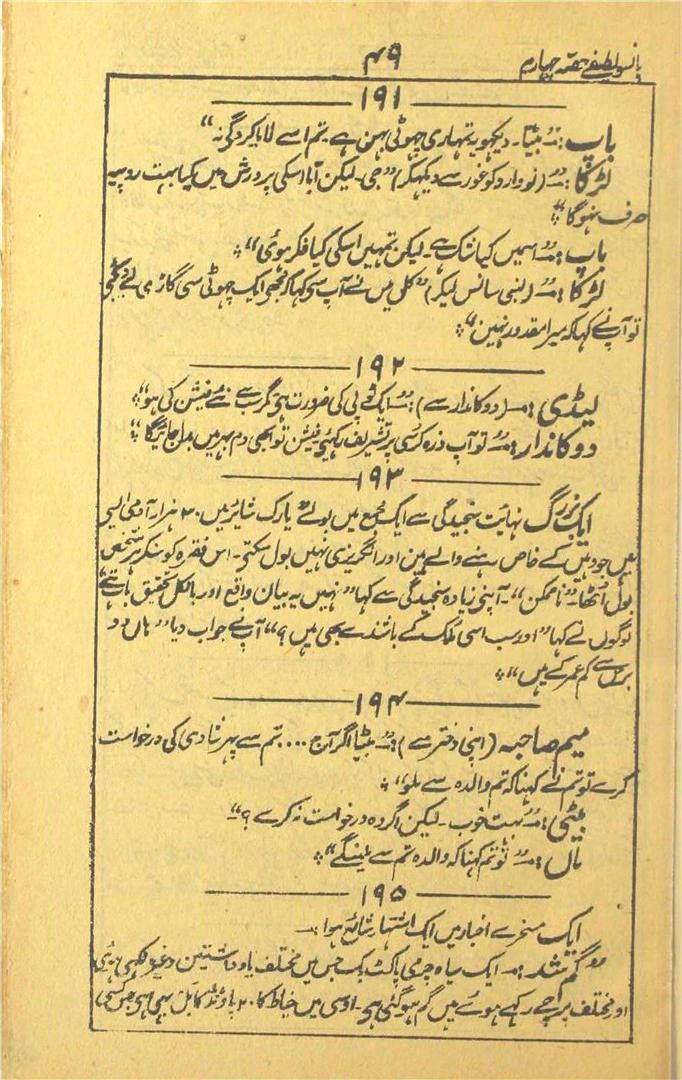 پانسو لطیفے حصّہ چہارم
۴۹
۱۹۱
باپ :۔ ”بیٹا۔ دیکھو یہ تمہاری چھوٹی بہن ہے۔ تم اسے لایا کرو گی نہ“
لڑکا :۔ (نووارد کو غور سے دیکھکر) ”جی۔ لیکن آبا اسکی پرورش میں کیا بہت روپیہ
صرف نہوگا“
باپ :۔ ”اسمیں کیا شک ہے۔ لیکن تمہیں اسکی کیا فکر ہوئی“
لڑکا :۔ (لنبی سانس لیکر) ”کل میں نے آپ سی کہا کہ مجھی ایک چھوٹی سی گاڑی
تو آپ نے کہا کہ میرا مقدور نہین“
۱۹۲
لیڈی :۔ (دوکاندار سے) :۔ ”ایک ٹوپی کی ضرورت ہی مگر سب سے نئے فیشن کی ہو“
دوکاندار :۔ ”تو آپ ذرہ کرسی پر تشریف رکہئی فیشن تو ابھی دم بہر میں بدل جائیگا“
۱۹۳
ایک بزرگ نہایت سنجیدگی سے ایک مجمع میں بولے ”یارک شائر میں ۳۰ ہزار آدمی ایسی
ہیں جو وہیں کے خاص رہنے والے ہین اور انگریزی نہیں بول سکتی۔ اس فقرہ کو سنکر ہر شخص
بول اُٹھا۔ ”ناممکن“۔ آپنی زیادہ سنجیدگی سے کہا ”نہیں یہ بیان واقع اور بالکل تحقیق بات ہے
لوگوں نے کہا ”اور سب اسی ملک کے باشندے بھی ہیں؟“ آپنے جواب دیا ”ہاں دو
برس سے کم عمر کے ہیں“
۱۹۴
میم صاحبہ (اپنی دختر سے) :۔ ”بیٹا اگر آج .... تم سے پہر شادی کی درخواست
کرے تو تم نے کہنا کہ تم والدہ سے ملو“
بیٹی :۔ ”بہت خوب۔ لیکن اگر وہ درخواست نہ کرے؟“
ماں :۔ ”تو تم کہنا کہ والدہ تم سے ملینگے“
۱۹۵
ایک مسخرے اخبار میں ایک اشتہار شائع ہوا :۔
”گم شد :۔ ایک سیاہ چرمی پاکٹ بک جس میں مختلف یادداشتین وغیرہ لکھی ہوئی
اور مختلف پرچے رکہے ہوئے ہیں گم ہو گئی ہی۔ اوسی میں خیاط کا ۲۰ پاونڈ کا بل بھی ہی جس کسی